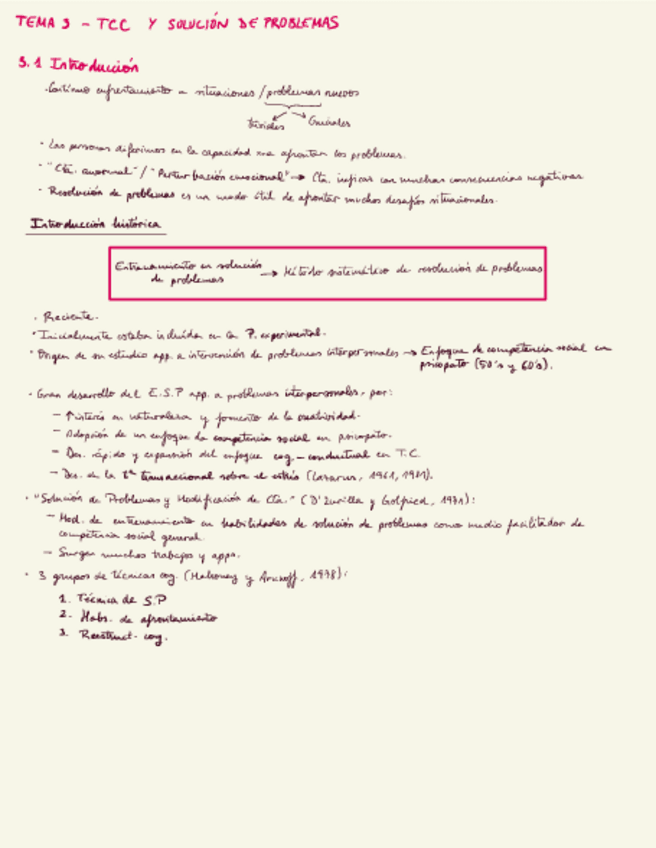 TEMA 3 - TCC Y SOLUCIÓN DE PROBLEMAS
3.1 Introducción
· Continuo enfrentamiento a situaciones / problemas nuevos
triviales Cruciales
· Las personas diferimos en la capacidad para afrontar los problemas.
· "Cta. anormal" / "Perturbación emocional" → Cta. ineficaz con muchas consecuencias negativas.
· Resolución de problemas es un modo útil de afrontar muchos desafíos situacionales.
Introducción histórica
Entrenamiento en solución de problemas → Método sistemático de resolución de problemas
· Reciente.
· Inicialmente estaba incluida en la P. experimental.
· Origen de su estudio app. a intervención de problemas interpersonales → Enfoque de competencia social en
psicopato (50's y 60's).
· Gran desarrollo del E.S.P app. a problemas interpersonales, por:
- ↑ interés en naturaleza y fomento de la creatividad.
- Adopción de un enfoque de competencia social en psicopato.
- Des. rápido y expansión del enfoque cog-conductual en T.C.
- Des. de la tª transaccional sobre el estrés (Lazarus, 1961, 1981).
· "Solución de Problemas y Modificación de Cta." (D'Zurilla y Golfried, 1971):
- Mod. de entrenamiento en habilidades de solución de problemas como medio facilitador de
competencia social general.
- Surgen muchos trabajos y apps.
· 3 grupos de técnicas cog. (Mahoney y Arnkoff, 1978):
1. Técnica de S.P
2. Habs. de afrontamiento
3. Reestruct. cog.